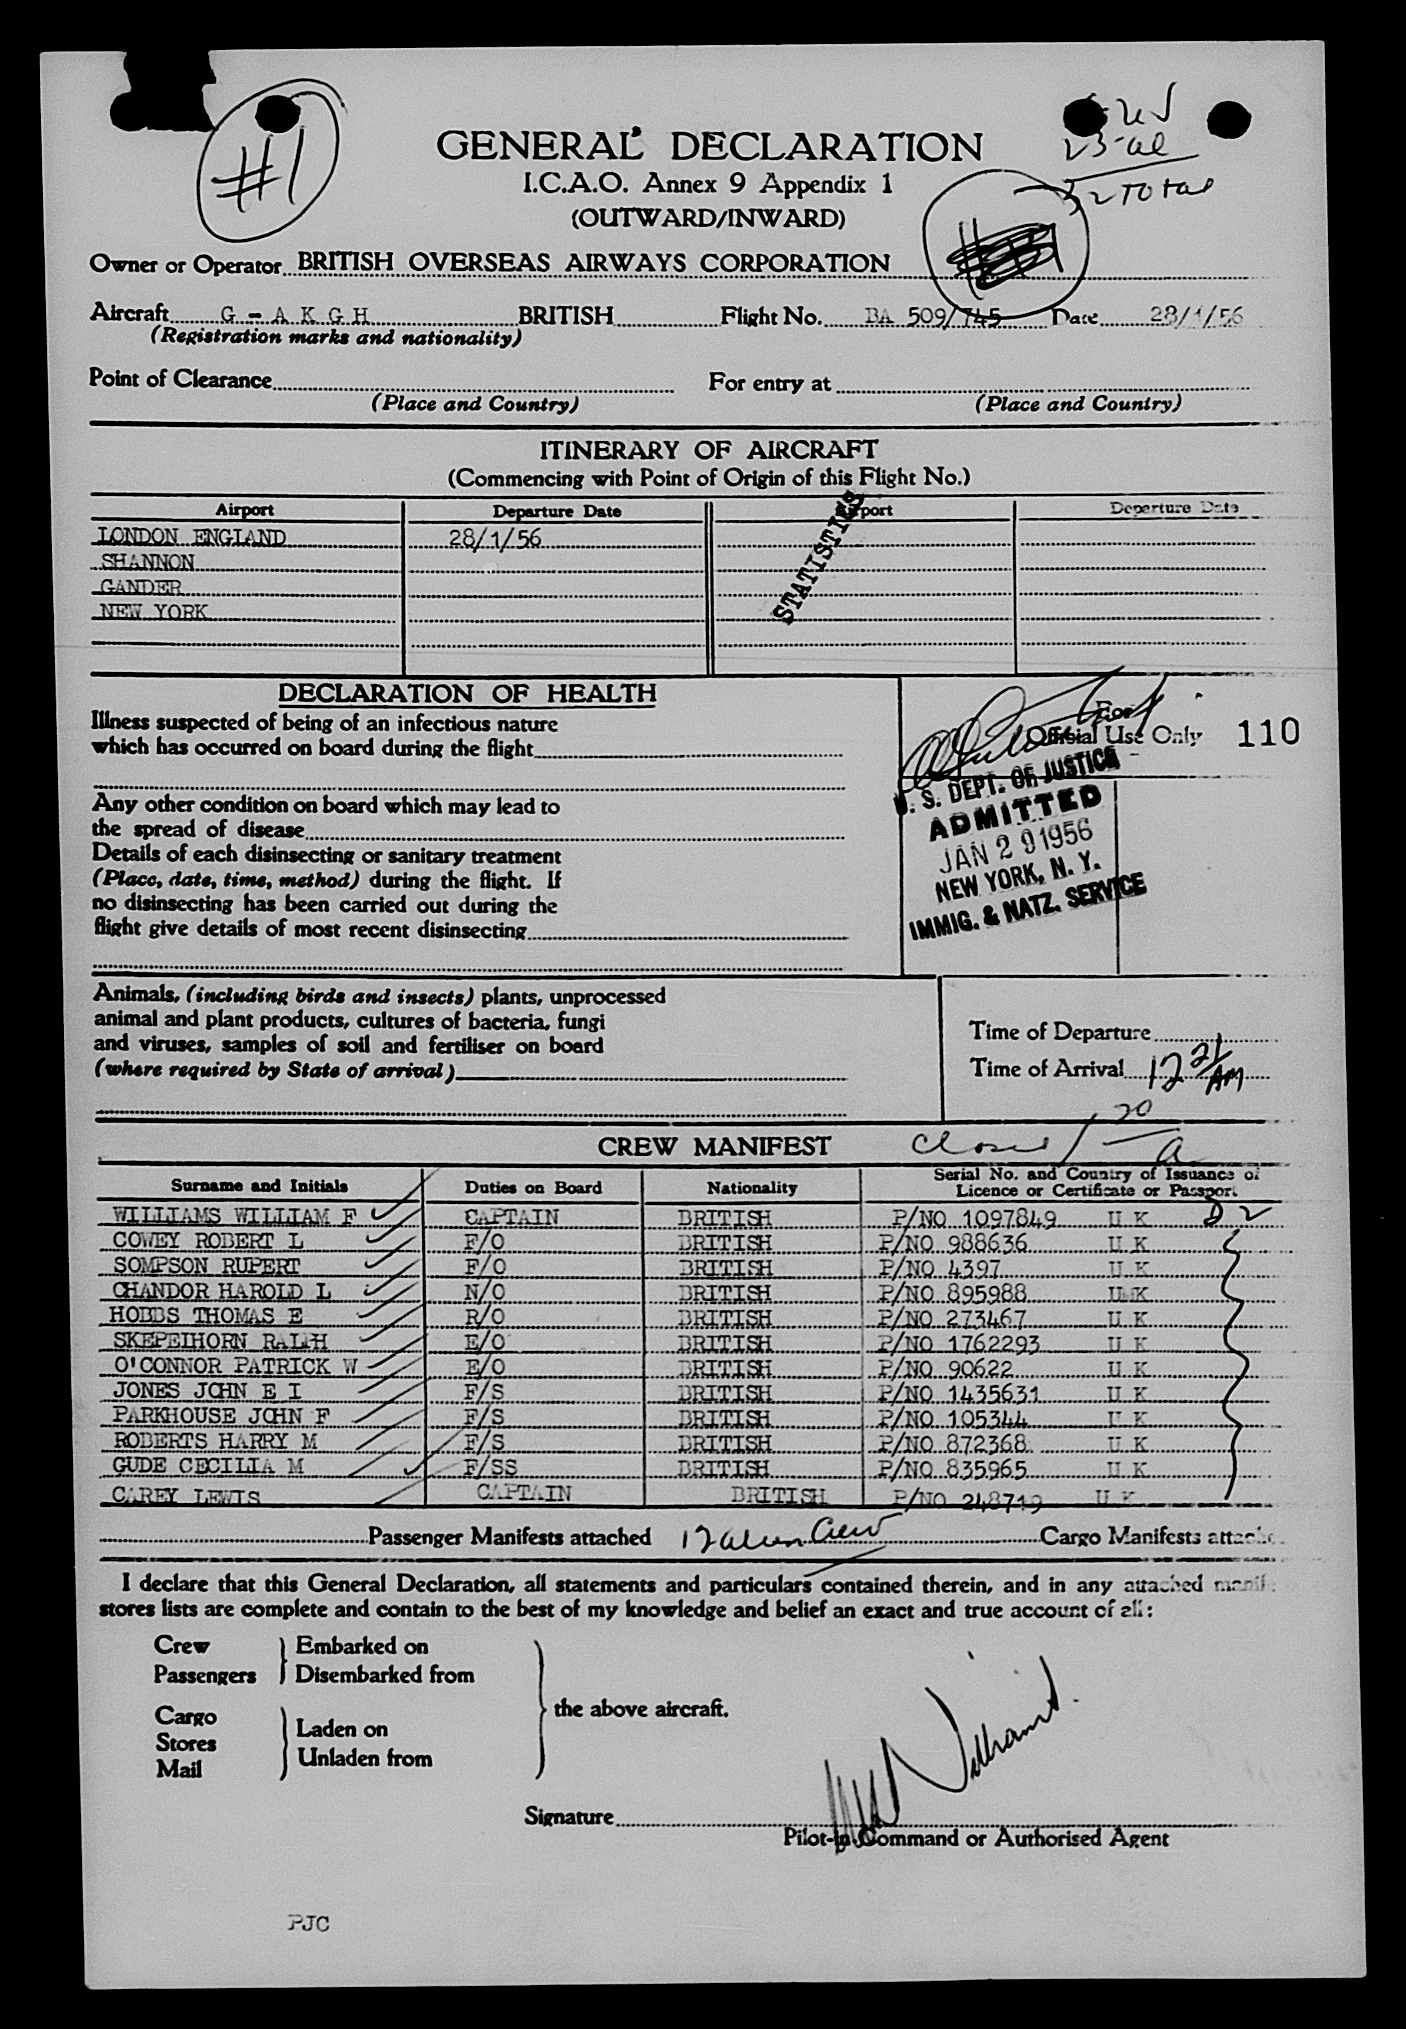 #1
us
23-al
32 Total
GENERAL DECLARATION
I.C.A.O. Annex 9 Appendix 1
(OUTWARD/INWARD)
Owner or Operator BRITISH OVERSEAS AIRWAYS CORPORATION
Aircraft G - A K G H BRITISH Flight No. BA 509/745 Date 28/1/56
(Registration marks and nationality)
Point of Clearance For entry at
(Place and Country) (Place and Country)
ITINERARY OF AIRCRAFT
(Commencing with Point of Origin of this Flight No.)
Airport Departure Date Airport Departure Date
STATISTICS
LONDON ENGLAND 28/1/56
SHANNON
GANDER
NEW YORK
DECLARATION OF HEALTH
Illness suspected of being of an infectious nature
which has occurred on board during the flight
For
Official Use Only 110
U. S. DEPT. OF JUSTICE
ADMITTED
JAN 29 1956
NEW YORK, N. Y.
IMMIG. & NATZ. SERVICE
Any other condition on board which may lead to
the spread of disease
Details of each disinsecting or sanitary treatment
(Place, date, time, method) during the flight. If
no disinsecting has been carried out during the
flight give details of most recent disinsecting
Animals, (including birds and insects) plants, unprocessed
animal and plant products, cultures of bacteria, fungi
and viruses, samples of soil and fertiliser on board
(where required by State of arrival)
Time of Departure
Time of Arrival 12 21 AM
CREW MANIFEST Closed 1 20 a
Surname and Initials Duties on Board Nationality Serial No. and Country of Issuance of
Licence or Certificate or Passport
WILLIAMS WILLIAM F CAPTAIN BRITISH P/NO 1097849 U K D 2
COWEY ROBERT L F/O BRITISH P/NO 988636 U K
SOMPSON RUPERT F/O BRITISH P/NO 4397 U K
CHANDOR HAROLD L N/O BRITISH P/NO 895988 U.K
HOBBS THOMAS E R/O BRITISH P/NO 273467 U K
SKEPEIHORN RALPH E/O BRITISH P/NO 1762293 U K
O'CONNOR PATRICK W E/O BRITISH P/NO 90622 U K
JONES JOHN E I F/S BRITISH P/NO 1435631 U K
PARKHOUSE JOHN F F/S BRITISH P/NO 105344 U K
ROBERTS HARRY M F/S BRITISH P/NO 872368 U K
GUDE CECILIA M F/SS BRITISH P/NO 835965 U K
CAREY LEWIS CAPTAIN BRITISH P/NO 248719 U K
Passenger Manifests attached 12 alien Crew Cargo Manifests attached
I declare that this General Declaration, all statements and particulars contained therein, and in any attached manif
stores lists are complete and contain to the best of my knowledge and belief an exact and true account of all:
Crew Embarked on
Passengers Disembarked from
the above aircraft.
Cargo Laden on
Stores
Mail Unladen from
Signature
Pilot-in-Command or Authorised Agent
PJC